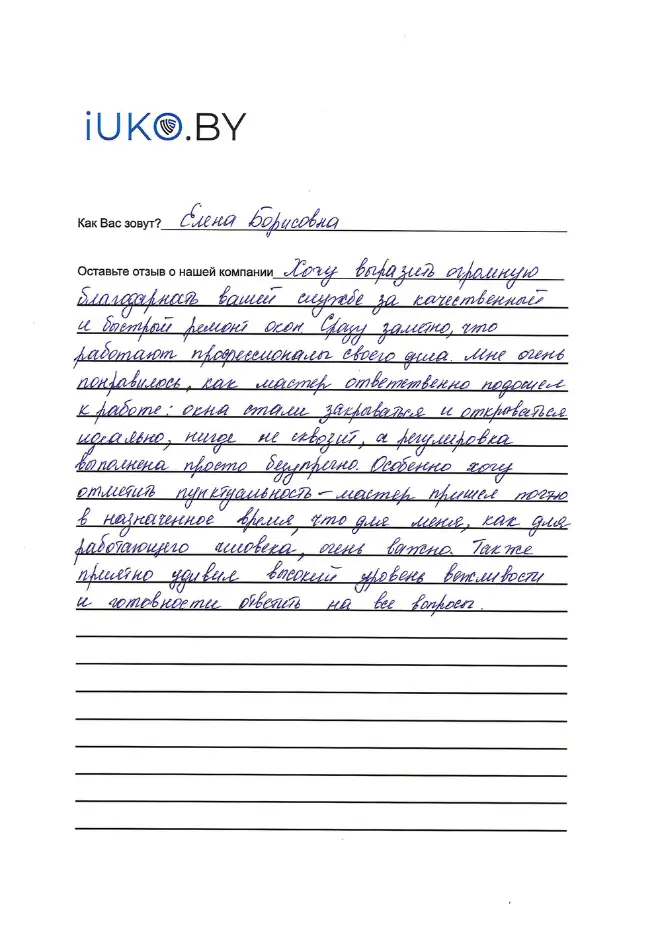 iUKO.BY
Как Вас зовут? Елена Борисовна
Оставьте отзыв о нашей компании Хочу выразить огромную
благодарность вашей службе за качественный
и быстрый ремонт окон. Сразу заметно, что
работают профессионалы своего дела. Мне очень
понравилось, как мастер ответственно подошел
к работе: окна стали закрываться и открываться
идеально, нигде не сквозит, а регулировка
выполнена просто безупречно. Особенно хочу
отметить пунктуальность – мастер пришел точно
в назначенное время, что для меня, как для
работающего человека, очень важно. Также
приятно удивил высокий уровень вежливости
и готовности ответить на все вопросы.